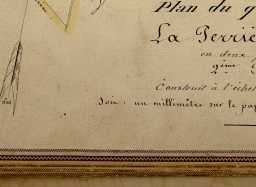 Plan du
La Terriè
en deux
2ème
Construit à l'échel
Soit: un millimètre sur le pap